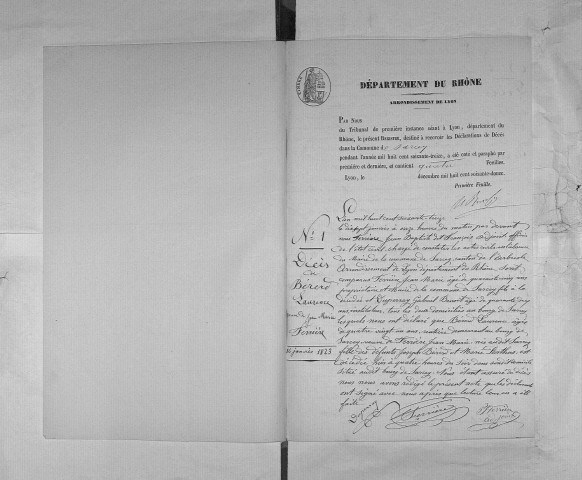 DÉPARTEMENT DU RHÔNE
ARRONDISSEMENT DE LYON
Par Nous
du Tribunal de première instance séant à Lyon, département du
Rhône, le présent Registre, destiné à recevoir les Déclarations de Décès
dans la Commune de Sarcey
pendant l'année mil huit cent soixante-treize, a été coté et paraphé par
première et dernière, et contient quatre Feuilles.
Lyon, le décembre mil huit cent soixante-douze.
Première Feuille.
N° 1
Décès
de
Bererd
Laurence
veuve de Jean Marie
Ferrière
16 janvier 1873
L'an mil huit cent soixante treize
le dix sept janvier à onze heures du matin par devant
nous Ferrière Jean Baptiste dit François adjoint officier
de l'état civil chargé de constater les actes civils
du Maire de la commune de Sarcey, canton de l'Arbresle
Arrondissement de Lyon département du Rhône. Sont
comparus Ferrière Jean Marie âgé de quarante cinq ans
propriétaire et Maire de la commune de Sarcey fils à la
décédée et Duperray Gabriel Benoit âgé de quarante
ans instituteur, tous les deux domiciliés au bourg de Sarcey
lesquels nous ont déclaré que Bererd Laurence âgée
de quatre vingt un ans rentière demeurant au bourg de
Sarcey veuve de Ferrière Jean Marie née audit Sarcey
fille des défunts Joseph Bererd et Marie est
décédée hier à quatre heures du soir dans
située audit bourg de Sarcey. Nous étant assuré du décès
nous avons rédigé le présent acte que les déclarants
ont signé avec nous après que lecture leur en a été
faite.
Duperray Ferrière Ferrière